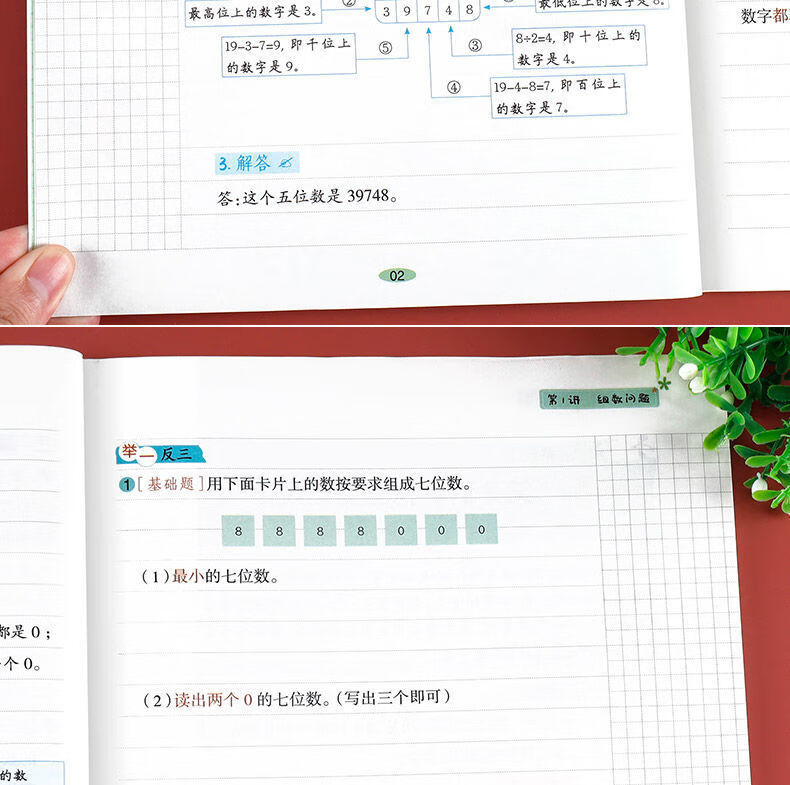 最高位上的数字是 3。
②
3 9 7 4 8
最低位上的数字是 8。
数字都
19-3-7=9, 即千位上
的数字是 9。
⑤
③
8÷2=4, 即十位上的
数字是 4。
④
19-4-8=7, 即百位上
的数字是 7。
3. 解答
答:这个五位数是 39748。
02
第1讲 组数问题
举一反三
1 [基础题] 用下面卡片上的数按要求组成七位数。
8 8 8 8 0 0 0
(1) 最小的七位数。
都是 0;
个 0。
(2) 读出两个 0 的七位数。(写出三个即可)
的数